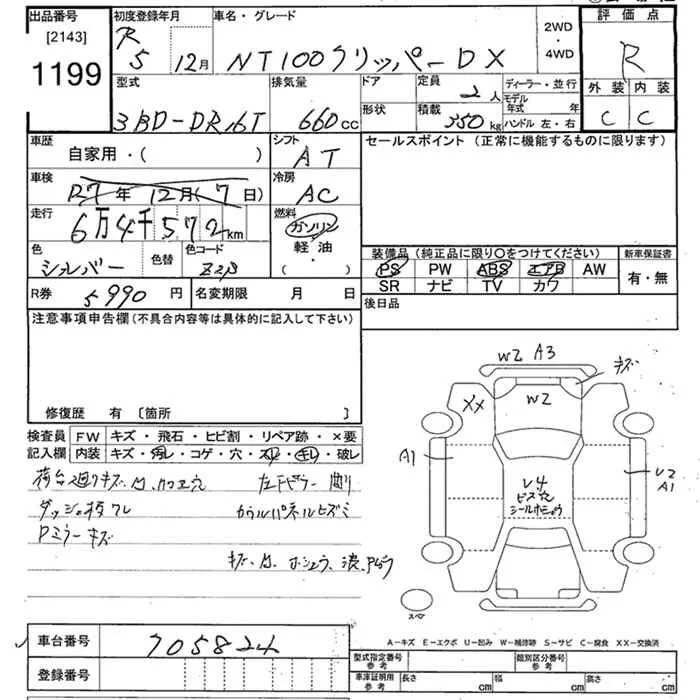 出品番号 初度登録年月 車名・グレード 2WD・4WD 評価点
[2143]
1199
R 5 12月 NT100クリッパー DX R
型式 排気量 ドア 定員 2人 ディーラー・並行 外装 内装
3BD-DR16T 660cc 形状 積載 350kg モデル年式 年 ハンドル 左・右 C C
車歴 自家用・( ) シフト AT セールスポイント (正常に機能するものに限ります)
車検 R7年 12月(7日) 冷房 AC
走行 6万4千572km 燃料 ガソリン 軽油 ・( )
色 シルバー 色替 色コード
装備品 (純正品に限り○をつけてください) 新車保証書
PS PW ABS エアB AW 有・無
SR ナビ TV カワ
R券 5990円 名変期限 月 日 後日品
注意事項申告欄 (不具合内容等は具体的に記入して下さい)
修復歴 有 [箇所 ]
検査員記入欄 FW キズ・飛石・ヒビ割・リペア跡・×要
内装 キズ・汚レ・コゲ・穴・スレ・キレ・破レ
荷台廻りキズ、凹、
ダッシュ板ワレ カウルパネルヒズミ
Pミラーキズ
W2 A3 キズ
XX W2
A1 U4 U2
A1
スペア
車台番号 705824
登録番号
A-キズ E-エクボ U-凹み W-補修跡 S-サビ C-腐食 XX-交換済
型式指定番号 参考 類別区分番号 参考
車庫証明用 参考 長さ cm 幅 cm 高さ cm